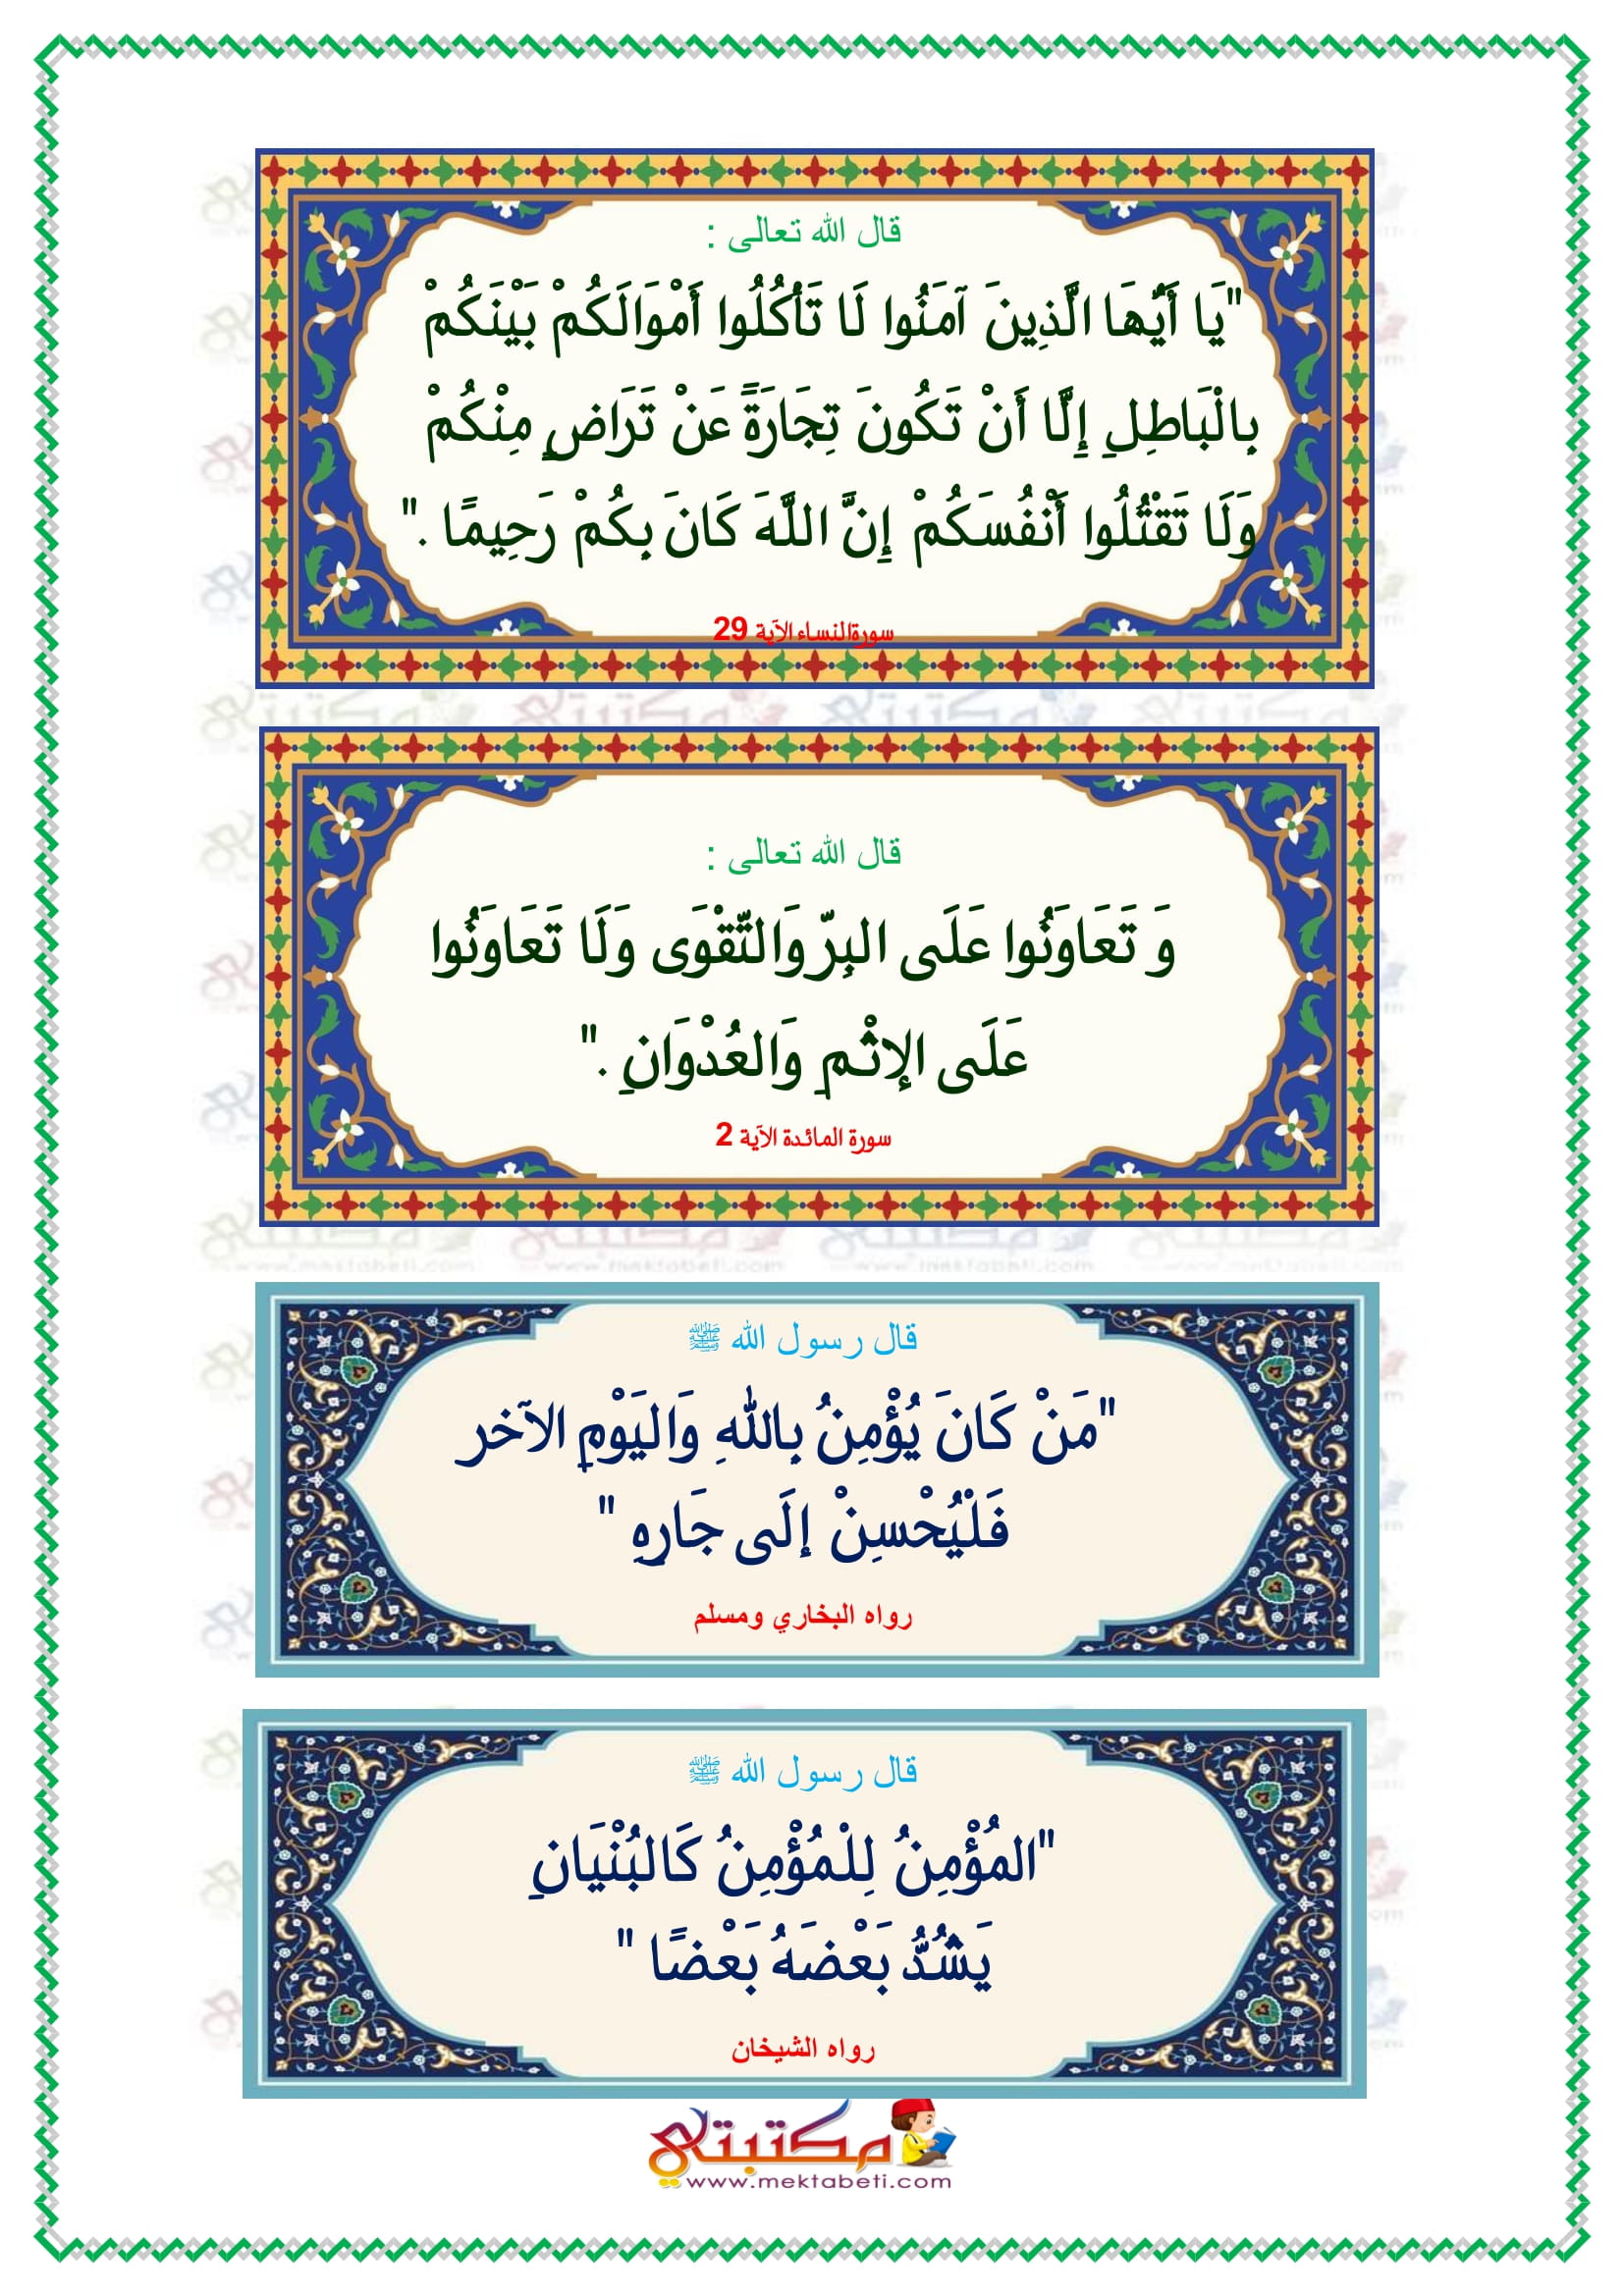 قال الله تعالى :
"يَا أَيُّهَا الَّذِينَ آمَنُوا لَا تَأْكُلُوا أَمْوَالَكُمْ بَيْنَكُمْ
بِالْبَاطِلِ إِلَّا أَنْ تَكُونَ تِجَارَةً عَنْ تَرَاضٍ مِنْكُمْ
وَلَا تَقْتُلُوا أَنْفُسَكُمْ إِنَّ اللَّهَ كَانَ بِكُمْ رَحِيمًا ."
سورةالنساء الآية 29
قال الله تعالى :
وَ تَعَاوَنُوا عَلَى البِرِّ وَالتَّقْوَى وَلَا تَعَاوَنُوا
عَلَى الإثْمِ وَالعُدْوَانِ ."
سورة المائدة الآية 2
قال رسول الله ﷺ
"مَنْ كَانَ يُؤْمِنُ بِاللهِ وَاليَوْمِ الآخر
فَلْيُحْسِنْ إلَى جَارِهِ "
رواه البخاري ومسلم
قال رسول الله ﷺ
"المُؤْمِنُ لِلْمُؤْمِنُ كَالبُنْيَانِ
يَشُدُّ بَعْضَهُ بَعْضًا "
رواه الشيخان
مكتبتي
www.mektabeti.com